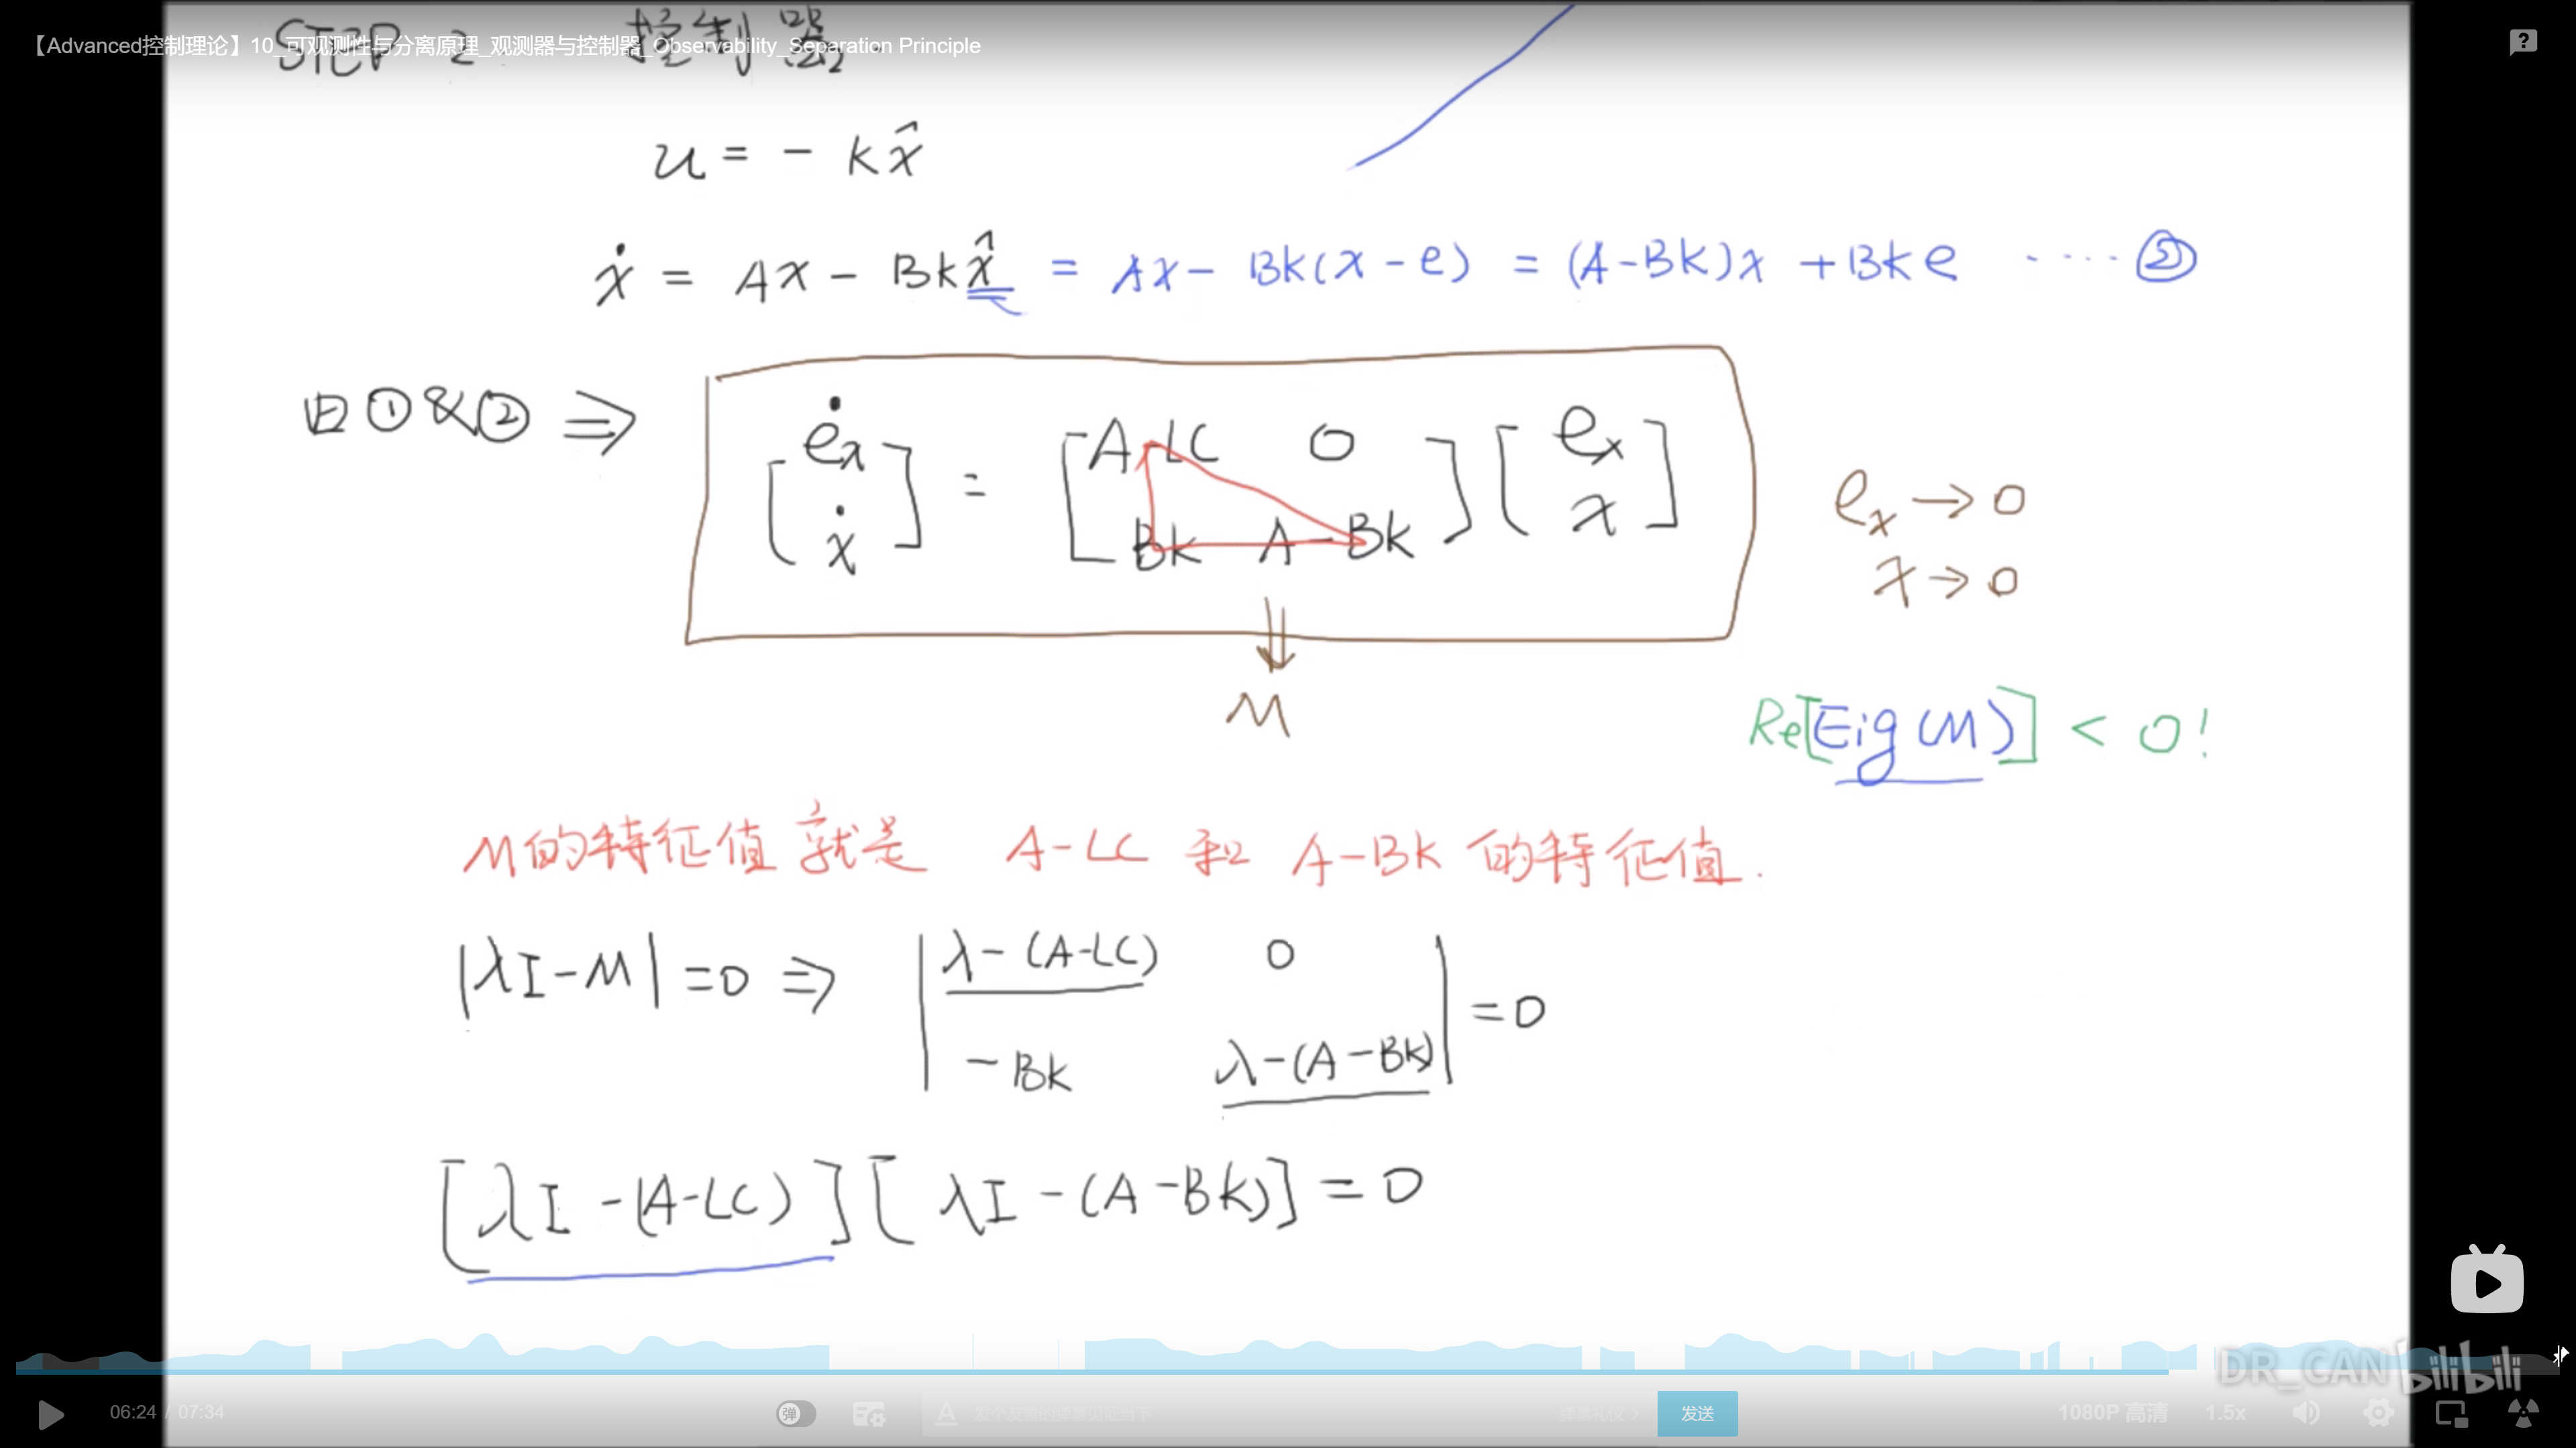 【Advanced控制理论】10_可观测性与分离原理_观测器与控制器_Observability_Separation Principle
STEP 2 控制器
u = - kx̂
ẋ = Ax - Bkx̂ = Ax - Bk(x - e) = (A-BK)x + Bke ····· ②
由①&②⇒ [ėx ẋ] = [A-LC 0
Bk A-Bk] [ex x]
ex → 0
x → 0
M
Re[Eig(M)] < 0!
M的特征值就是 A-LC 和 A-BK 的特征值.
|λI-M| =0 ⇒ |λ-(A-LC) 0
-Bk λ-(A-Bk)| =0
[λI-(A-LC)][λI-(A-BK)] = 0
DR_CAN bilibili
06:24 / 07:34
弹
发个友善的弹幕见证当下
弹幕礼仪 >
发送
1080P 高清
1.5x